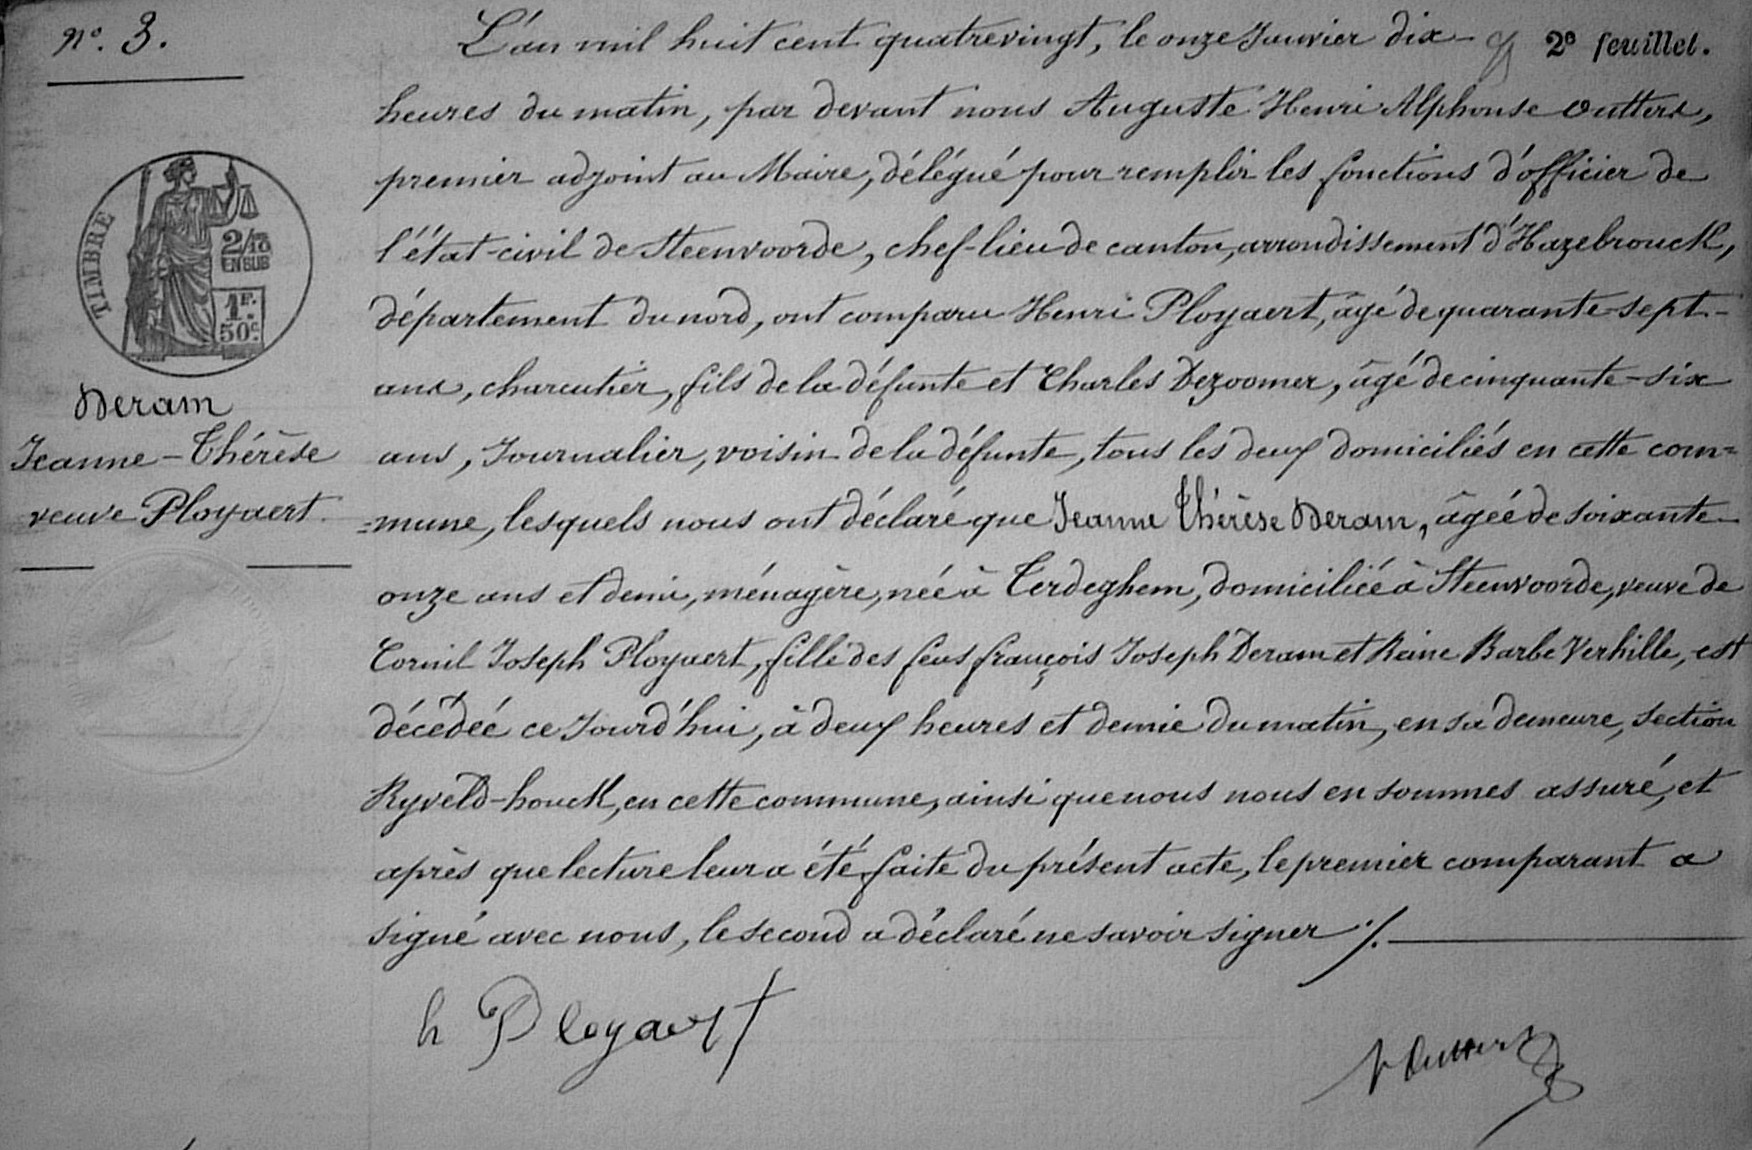 n°. 3.
L'an mil huit cent quatrevingt, le onze Janvier dix-
2e feuillet.
heures du matin, par devant nous Auguste Henri Alphonse Outters,
premier adjoint au Maire, délégué pour remplir les fonctions d'officier de
l'état-civil de Steenvoorde, chef-lieu de canton, arrondissement d'Hazebrouck,
département du nord, ont comparu Henri Ployaert, âgé de quarante-sept-
ans, charcutier, fils de la défunte et Charles Dezoomer, âgé de cinquante-six
ans, Journalier, voisin de la défunte, tous les deux domiciliés en cette com=
=mune, lesquels nous ont déclaré que Jeanne Thérèse Deram, âgée de soixante-
onze ans et demi, ménagère, née à Terdeghem, domiciliée à Steenvoorde, veuve de
Cornil Joseph Ployaert, fille des feus françois Joseph Deram et Reine Barbe Verhille, est
décédée ce Jourd'hui, à deux heures et demie du matin, en sa demeure, section
Ryveld-houck, en cette commune, ainsi que nous nous en sommes assuré, et
après que lecture leur a été faite du présent acte, le premier comparant a
signé avec nous, le second a déclaré ne savoir signer ./.
TIMBRE
2/10
EN SUS
1F.
50c.
Deram
Jeanne-Thérèse
veuve Ployaert.
h Ployaert
A Outters